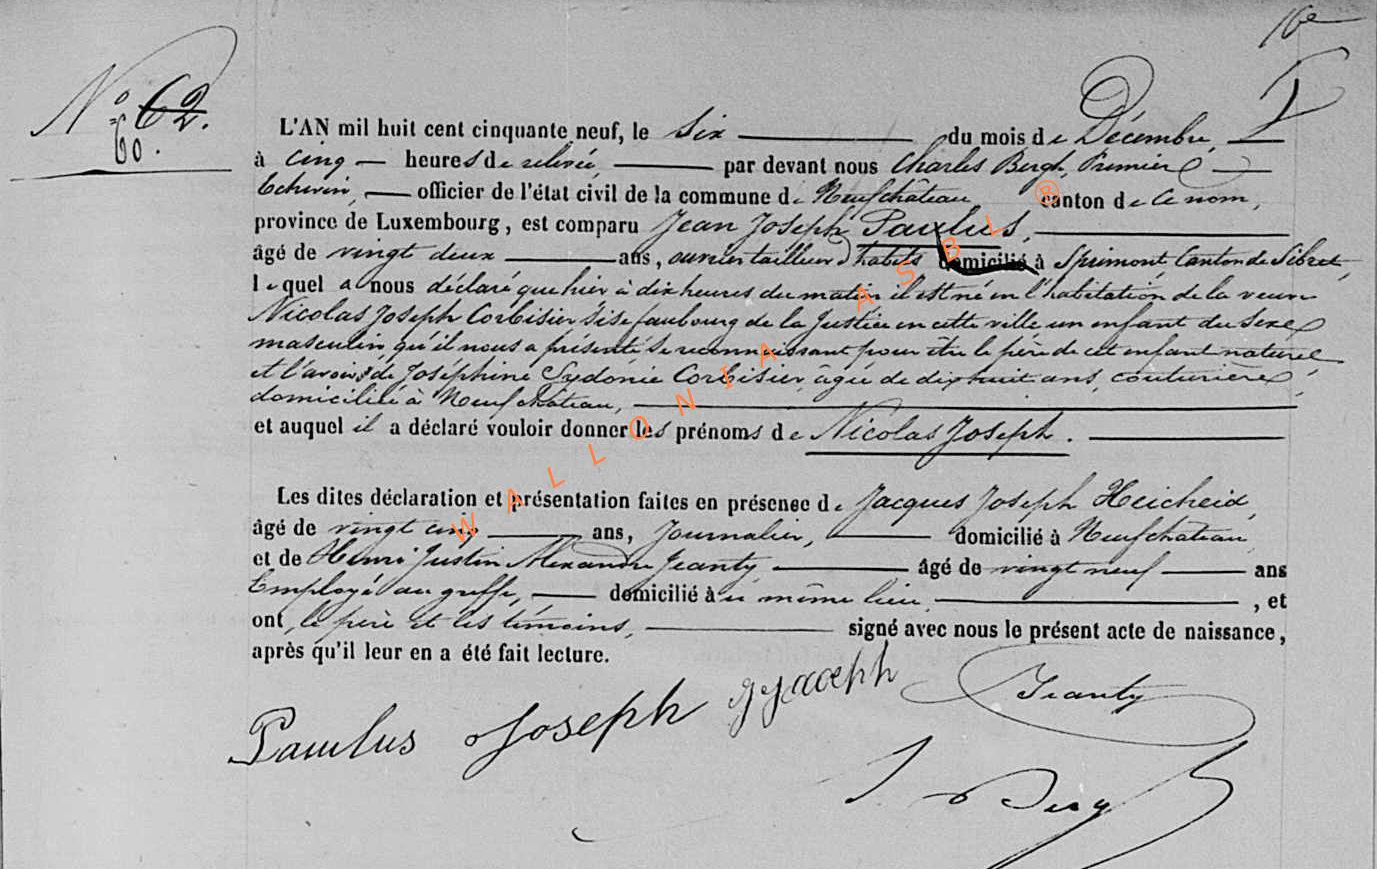 16e
N° 62.
60.
L'AN mil huit cent cinquante neuf, le Six du mois de Décembre,
à cinq heures de relevée, par devant nous Charles Bergh, Premier
Echevin, officier de l'état civil de la commune de Neufchâteau canton de ce nom,
province de Luxembourg, est comparu Jean Joseph Paulus,
âgé de vingt deux ans, ouvrier tailleur d'habits domicilié à Sprimont, Canton de Sibret,
lequel a nous déclaré que hier à dix heures du matin il est né en l'habitation de la veuve
Nicolas Joseph Corbisier sise faubourg de la Justice en cette ville un enfant du sexe
masculin qu'il nous a présenté se reconnaissant pour être le père de cet enfant naturel
et l'avoir de Joséphine Sydonie Corbisier, âgée de dix huit ans, couturière,
domiciliée à Neufchâteau,
et auquel il a déclaré vouloir donner les prénoms de Nicolas Joseph.
Les dites déclaration et présentation faites en présence de Jacques Joseph Heicheid,
âgé de vingt cinq ans, Journalier, domicilié à Neufchateau
et de Henri Justin Alexandre Jeanty âgé de vingt neuf ans
Employé au greffe, domicilié à au même lieu, , et
ont, le père et les témoins, signé avec nous le présent acte de naissance,
après qu'il leur en a été fait lecture.
Paulus Joseph Jeanty
WALLONIA ASBL ®